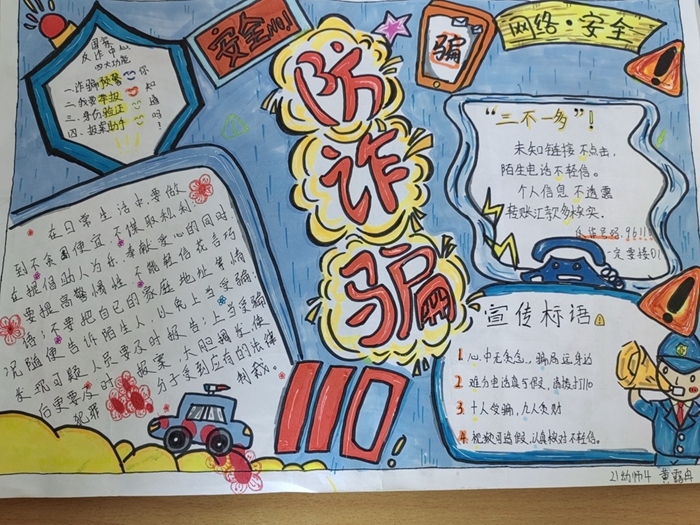 国家
反诈中心
四大功能
一、诈骗预警
二、我要举报
三、身份验证
四、报案助手
你知道吗？
安全NO.1
防诈骗
骗
网络·安全
“三不一多”！
未知链接不点击，
陌生电话不轻信。
个人信息不透露
转账汇款多核实。
96110
一定要接！
在日常生活中，要做
到不贪图便宜、不谋取私利
在提倡助人为乐、奉献爱心的同时
要提高警惕性，不能轻信花言巧
语；不要把自己的家庭地址等情
况随便告诉陌生人，以免上当受骗；
发现可疑人员要及时报告；上当受骗
后更要及时报案、大胆揭发，使
犯罪分子受到应有的法律
制裁。
110!
宣传标语
1 心中无贪念，骗局远身边
2 难分电话真与假，请拨打110
3 十人受骗，九人贪财
4 视频可造假，认真核对不轻信。
21幼师4 黄露冉